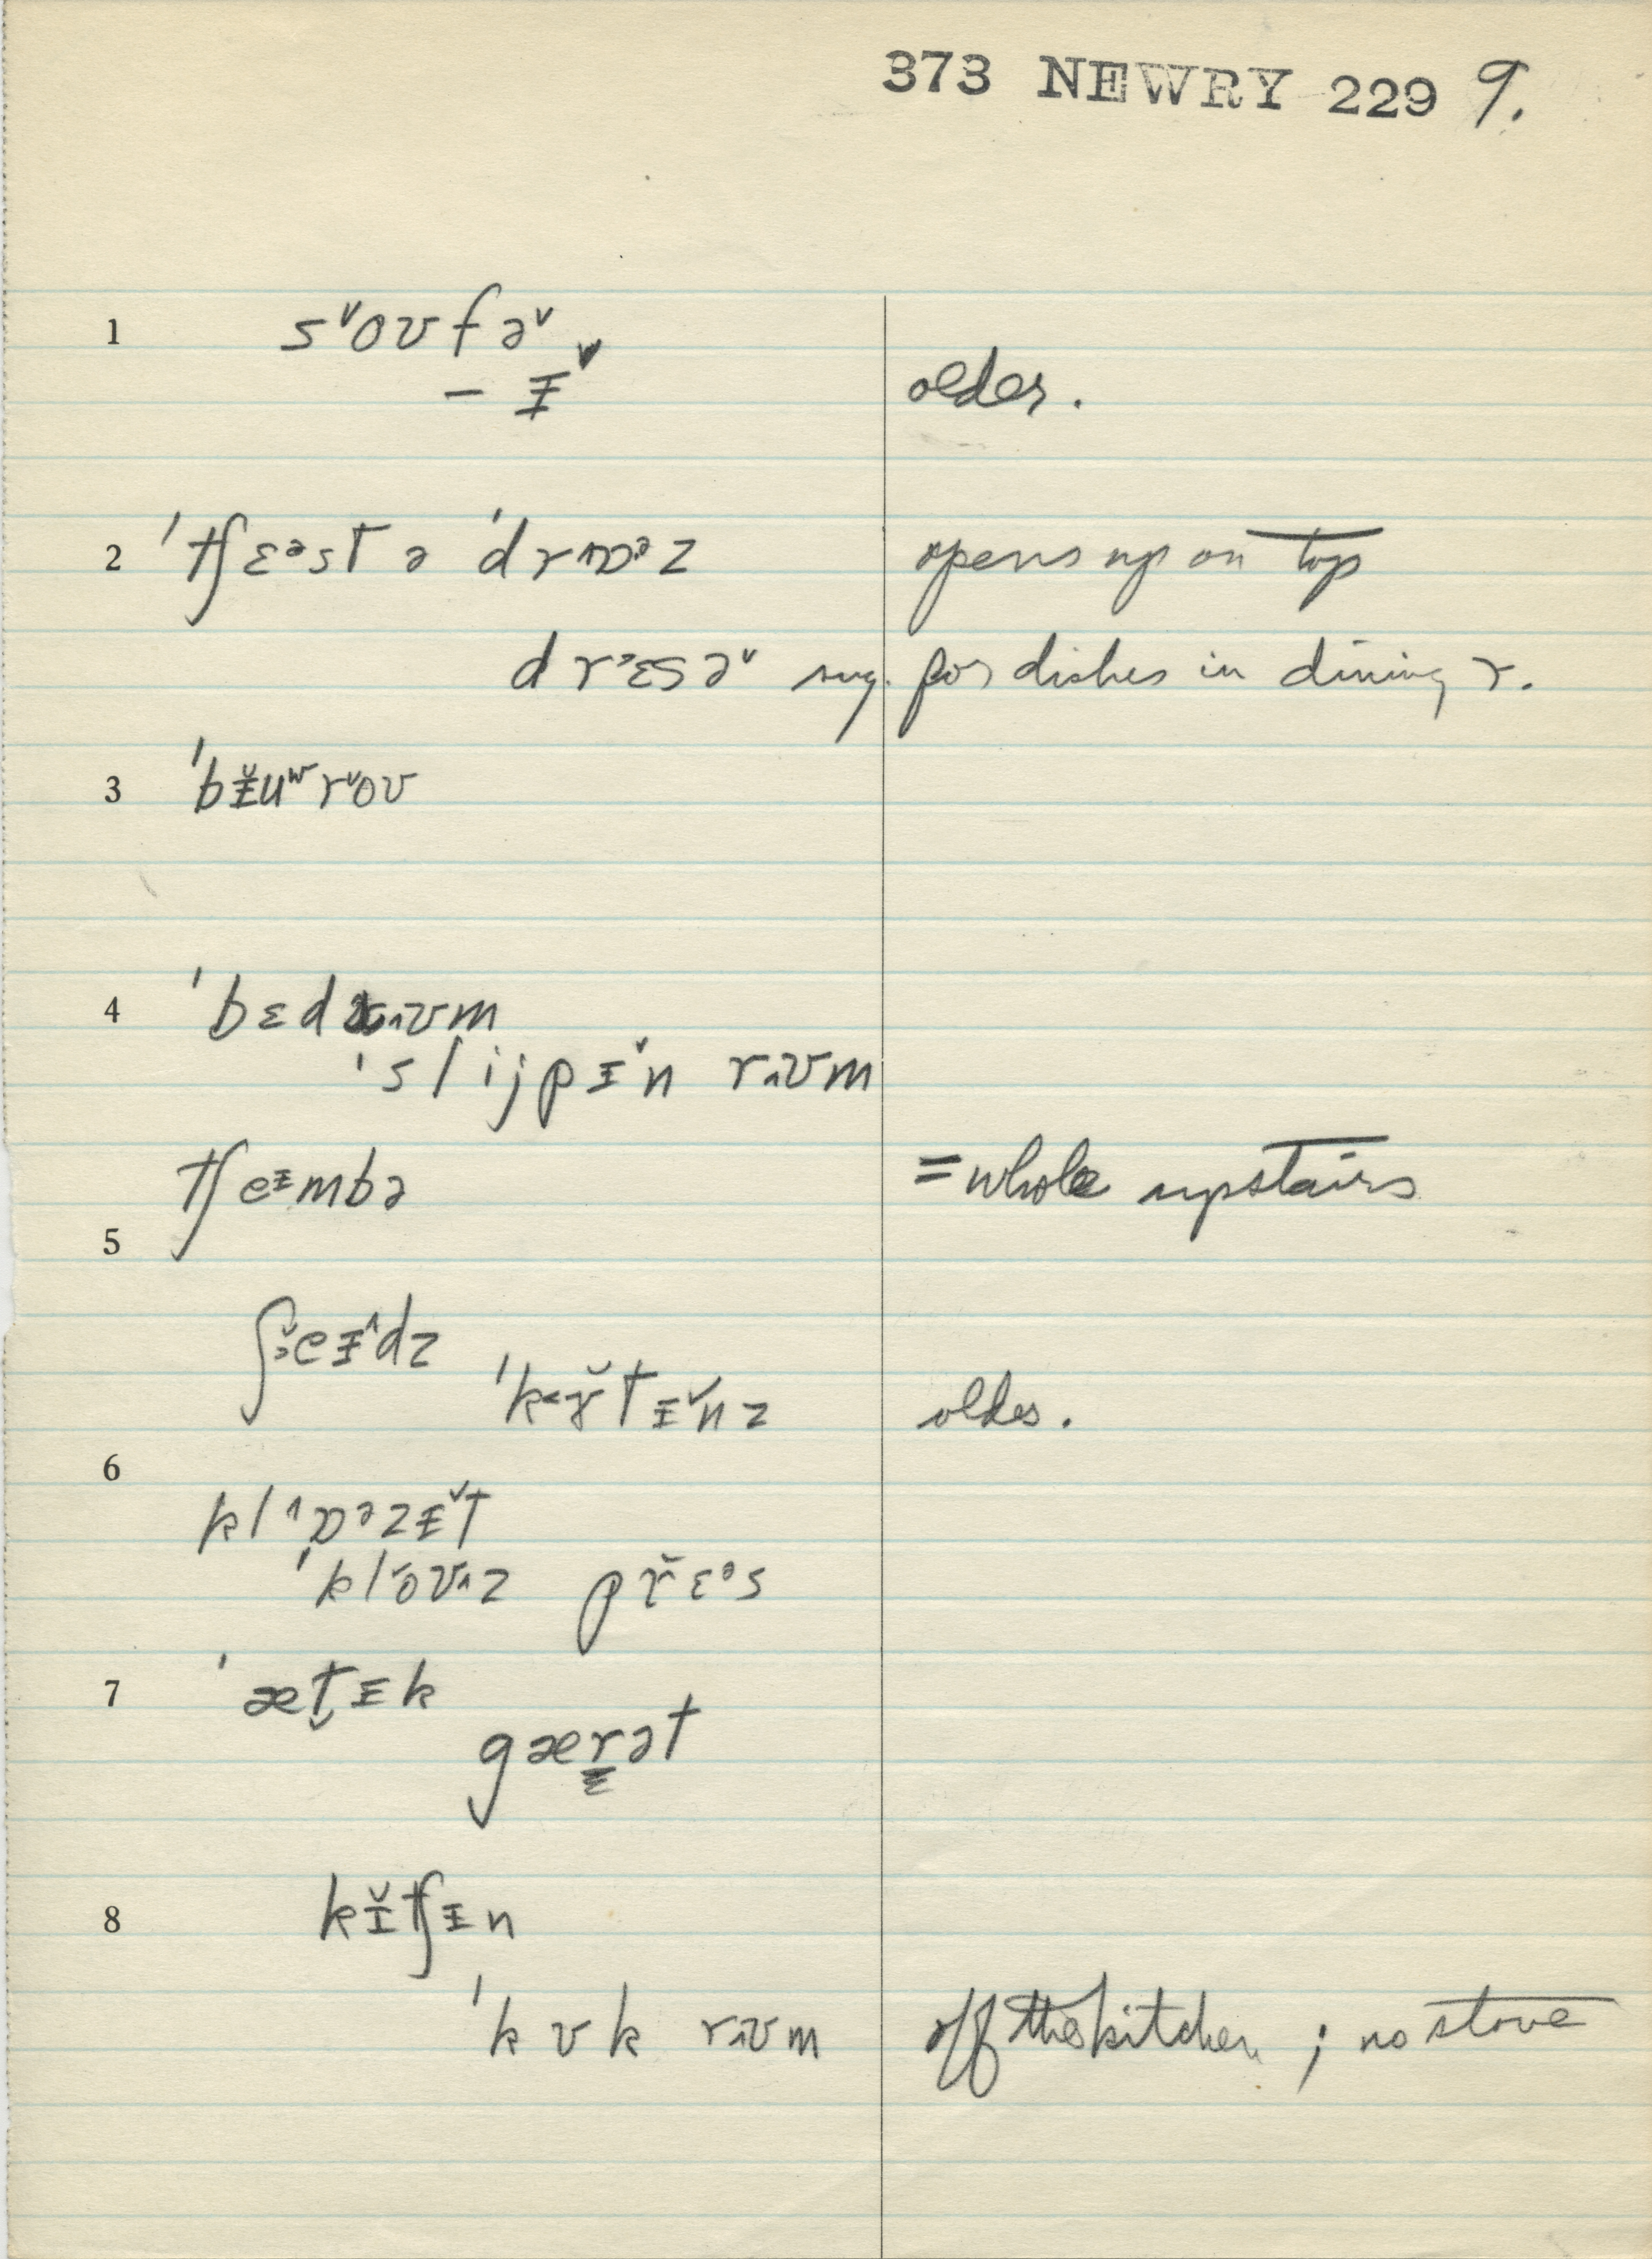 373 NEWRY 229 9.
1 s˅oʊfə˅
– ɨ˅ older.
2 ˈtʃɛᵊst ə ˈdrʌɒᵊz opens up on top
dr˃ɛsə˅ sug. for dishes in dining r.
3 ˈbɨ̌uʷr˅oʊ
4 ˈbɛdr˄ʊm
ˈslijpɨ˅n r˄ʊm
tʃeᶤmbə = whole upstairs
5
ʃ˅eɨ˄dz
ˈk˂ɤ̌tɨ˅nz older.
6
kl˄ɒᵊzɨ˅t
ˈkl˅oʊ˄z př ɛᵊs
7 ˈæt̬ɨk
gærət
8 kɨ̌tʃɨn
ˈkʊk r˄ʊm off the kitchen ; no stove